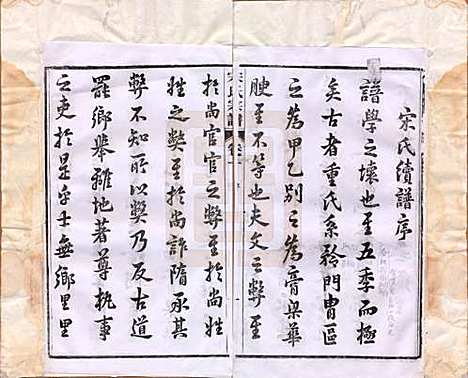 宋氏續譜序
譜學之壞也至五季而極
矣古者重氏系矜門胄區
之為甲乙別之為膏粱華
腴至不等也夫文之弊至
於尚官官之弊至於尚姓
姓之弊至於尚詐隋承其
弊不知所以弊乃反古道
罷鄉舉離地著尊執事
之吏於是乎士無鄉里里
宋氏宗譜 卷之一